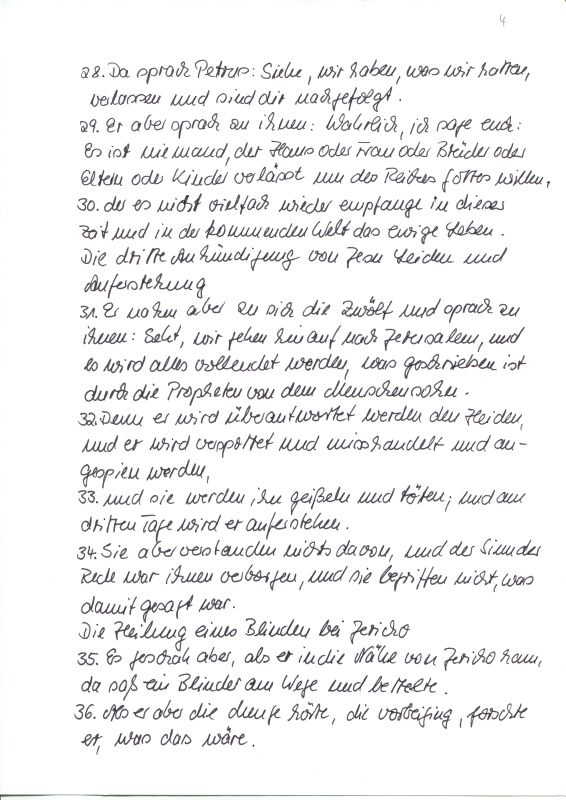 4
28. Da sprach Petrus: Siehe, wir haben, was wir hatten,
verlassen und sind dir nachgefolgt.
29. Er aber sprach zu ihnen: Wahrlich, ich sage euch:
Es ist niemand, der Haus oder Frau oder Brüder oder
Eltern oder Kinder verlässt um des Reiches Gottes willen,
30. der es nicht vielfach wieder empfange in dieser
Zeit und in der kommenden Welt das ewige Leben.
Die dritte Ankündigung von Jesu Leiden und
Auferstehung
31. Er nahm aber zu sich die Zwölf und sprach zu
ihnen: Seht, wir gehen hinauf nach Jerusalem, und
es wird alles vollendet werden, was geschrieben ist
durch die Propheten von dem Menschensohn.
32. Denn er wird überantwortet werden den Heiden,
und er wird verspottet und misshandelt und an-
gespien werden,
33. und sie werden ihn geißeln und töten; und am
dritten Tage wird er auferstehen.
34. Sie aber verstanden nichts davon, und der Sinn der
Rede war ihnen verborgen, und sie begriffen nicht, was
damit gesagt war.
Die Heilung eines Blinden bei Jericho
35. Es geschah aber, als er in die Nähe von Jericho kam,
da saß ein Blinder am Wege und bettelte.
36. Als er aber die Menge hörte, die vorbeiging, forschte
er, was das wäre.